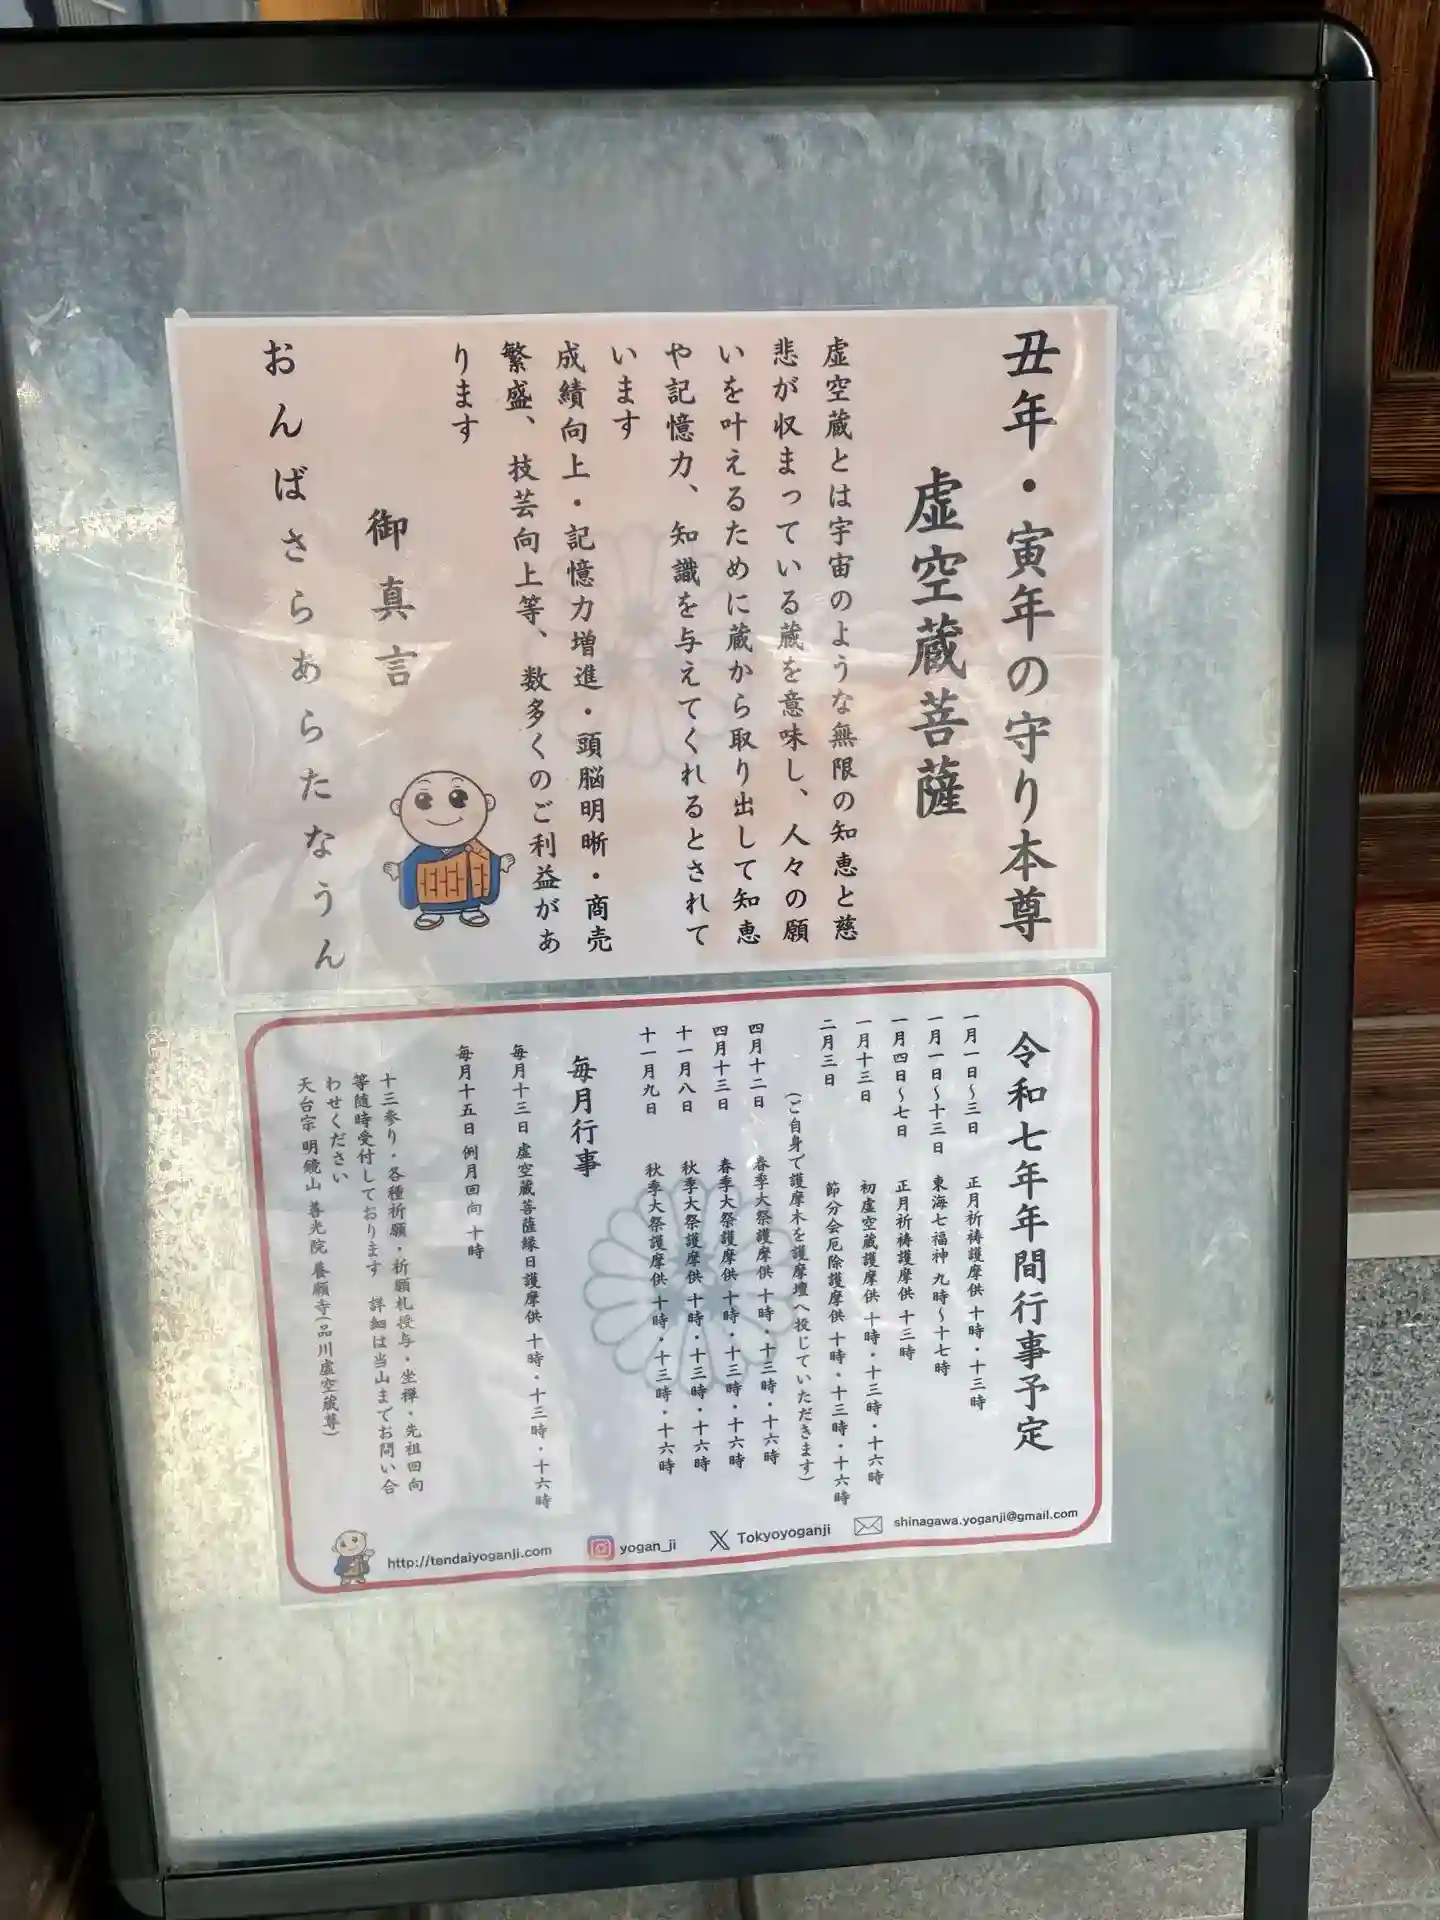 丑年・寅年の守り本尊
虚空蔵菩薩
虚空蔵とは宇宙のような無限の知恵と慈
悲が収まっている蔵を意味し、人々の願
いを叶えるために蔵から取り出して知恵
や記憶力、知識を与えてくれるとされて
います
成績向上・記憶力増進・頭脳明晰・商売
繁盛、技芸向上等、数多くのご利益があ
ります
御真言
おんばさらあらたなうん
令和七年年間行事予定
一月一日～三日 正月祈祷護摩供 十時・十三時
一月一日～十三日 東海七福神 九時～十七時
一月四日～七日 正月祈祷護摩供 十三時
一月十三日 初虚空蔵護摩供 十時・十三時・十六時
二月三日 節分会厄除護摩供 十時・十三時・十六時
(ご自身で護摩木を護摩壇へ投じていただきます)
四月十二日 春季大祭護摩供 十時・十三時・十六時
四月十三日 春季大祭護摩供 十時・十三時・十六時
十一月八日 秋季大祭護摩供 十時・十三時・十六時
十一月九日 秋季大祭護摩供 十時・十三時・十六時
毎月行事
毎月十三日 虚空蔵菩薩縁日護摩供 十時・十三時・十六時
毎月十五日 例月回向 十時
十三参り・各種祈願・祈願札授与・坐禅・先祖回向
等随時受付しております 詳細は当山までお問い合
わせください
天台宗 明鏡山 善光院 養願寺(品川虚空蔵尊)
http://tendaiyoganji.com yogan_ji Tokyoyoganji shinagawa.yoganji@gmail.com